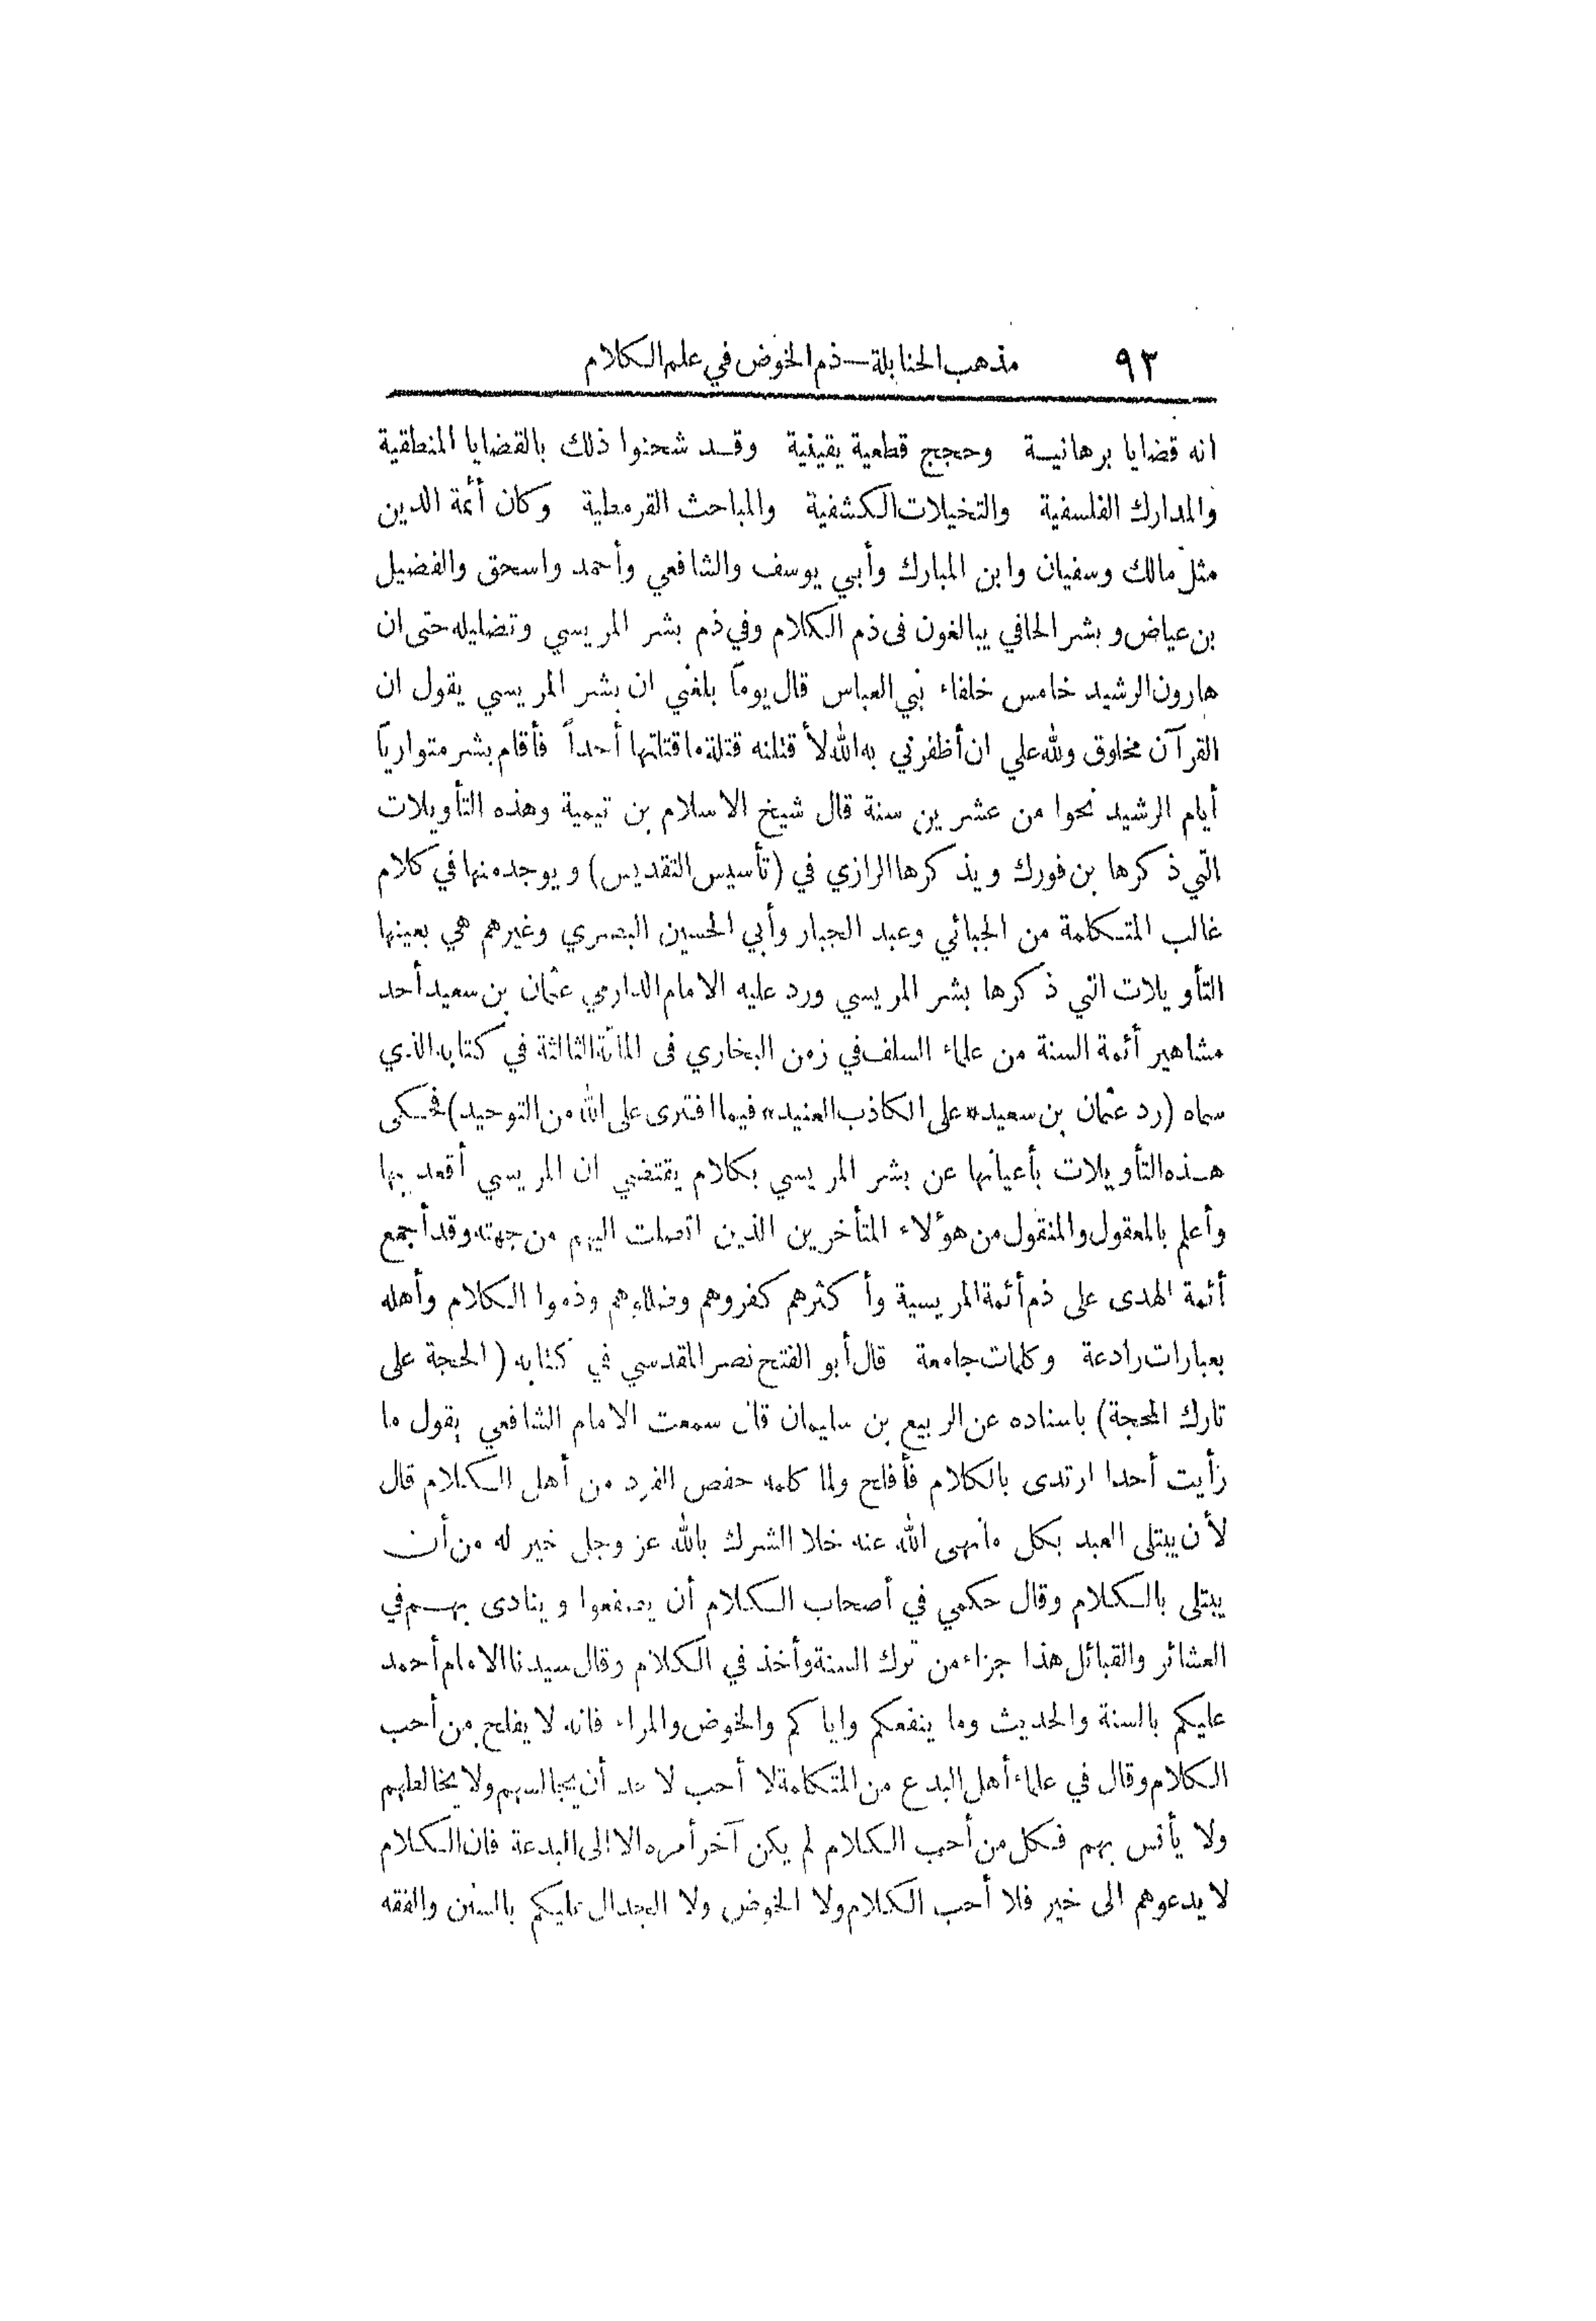 ٩٣ مذهب الحنابلة — ذم الخوض في علم الكلام
انه قضايا برهانية وحجج قطعية يقينية وقد شحنوا ذلك بالقضايا المنطقية
والمدارك الفلسفية والتخيلات الكشفية والمباحث القرمطية وكان أئمة الدين
مثل مالك وسفيان وابن المبارك وأبي يوسف والشافعي وأحمد واسحق والفضيل
بن عياض وبشر الحافي يبالغون فى ذم الكلام وفي ذم بشر المريسي وتضليله حتى ان
هارون الرشيد خامس خلفاء بني العباس قال يوماً بلغني ان بشر المريسي يقول ان
القرآن مخلوق ولله علي ان أظفرني به الله لأقتلنه قتلة ما قتلتها أحداً فأقام بشر متوارياً
أيام الرشيد نحوا من عشرين سنة قال شيخ الاسلام بن تيمية وهذه التأويلات
التي ذكرها بن فورك ويذكرها الرازي في (تأسيس التقديس) ويوجد منها في كلام
غالب المتكلمة من الجبائي وعبد الجبار وأبي الحسين البصري وغيرهم هي بعينها
التأويلات التي ذكرها بشر المريسي ورد عليه الامام الدارمي عثمان بن سعيد أحد
مشاهير أئمة السنة من علماء السلف في زمن البخاري فى المائة الثالثة في كتابه الذي
سماه (رد عثمان بن سعيد * على الكاذب العنيد * فيما افترى على الله من التوحيد) فحكى
هذه التأويلات بأعيانها عن بشر المريسي بكلام يقتضي ان المريسي أقعد بها
وأعلم بالمعقول والمنقول من هؤلاء المتأخرين الذين اتصلت اليهم من جهته وقد أجمع
أئمة الهدى على ذم أئمة المريسية وأكثرهم كفروهم وضللوهم وذموا الكلام وأهله
بعبارات رادعة وكلمات جامعة قال أبو الفتح نصر المقدسي في كتابه (الحجة على
تارك المحجة) باسناده عن الربيع بن سليمان قال سمعت الامام الشافعي يقول ما
رأيت أحدا ارتدى بالكلام فأفلح ولما كلمه حفص الفرد من أهل الكلام قال
لأن يبتلى العبد بكل ما نهى الله عنه خلا الشرك بالله عز وجل خير له من أن
يبتلى بالكلام وقال حكمي في أصحاب الكلام أن يصفعوا وينادى بهم في
العشائر والقبائل هذا جزاء من ترك السنة وأخذ في الكلام وقال سيدنا الامام أحمد
عليكم بالسنة والحديث وما ينفعكم واياكم والخوض والمراء فانه لا يفلح من أحب
الكلام وقال في علماء أهل البدع من المتكلمة لا أحب لاحد أن يجالسهم ولا يخالطهم
ولا يأنس بهم فكل من أحب الكلام لم يكن آخر أمره الا الى البدعة فان الكلام
لا يدعوهم الى خير فلا أحب الكلام ولا الخوض ولا الجدال عليكم بالسنن والفقه